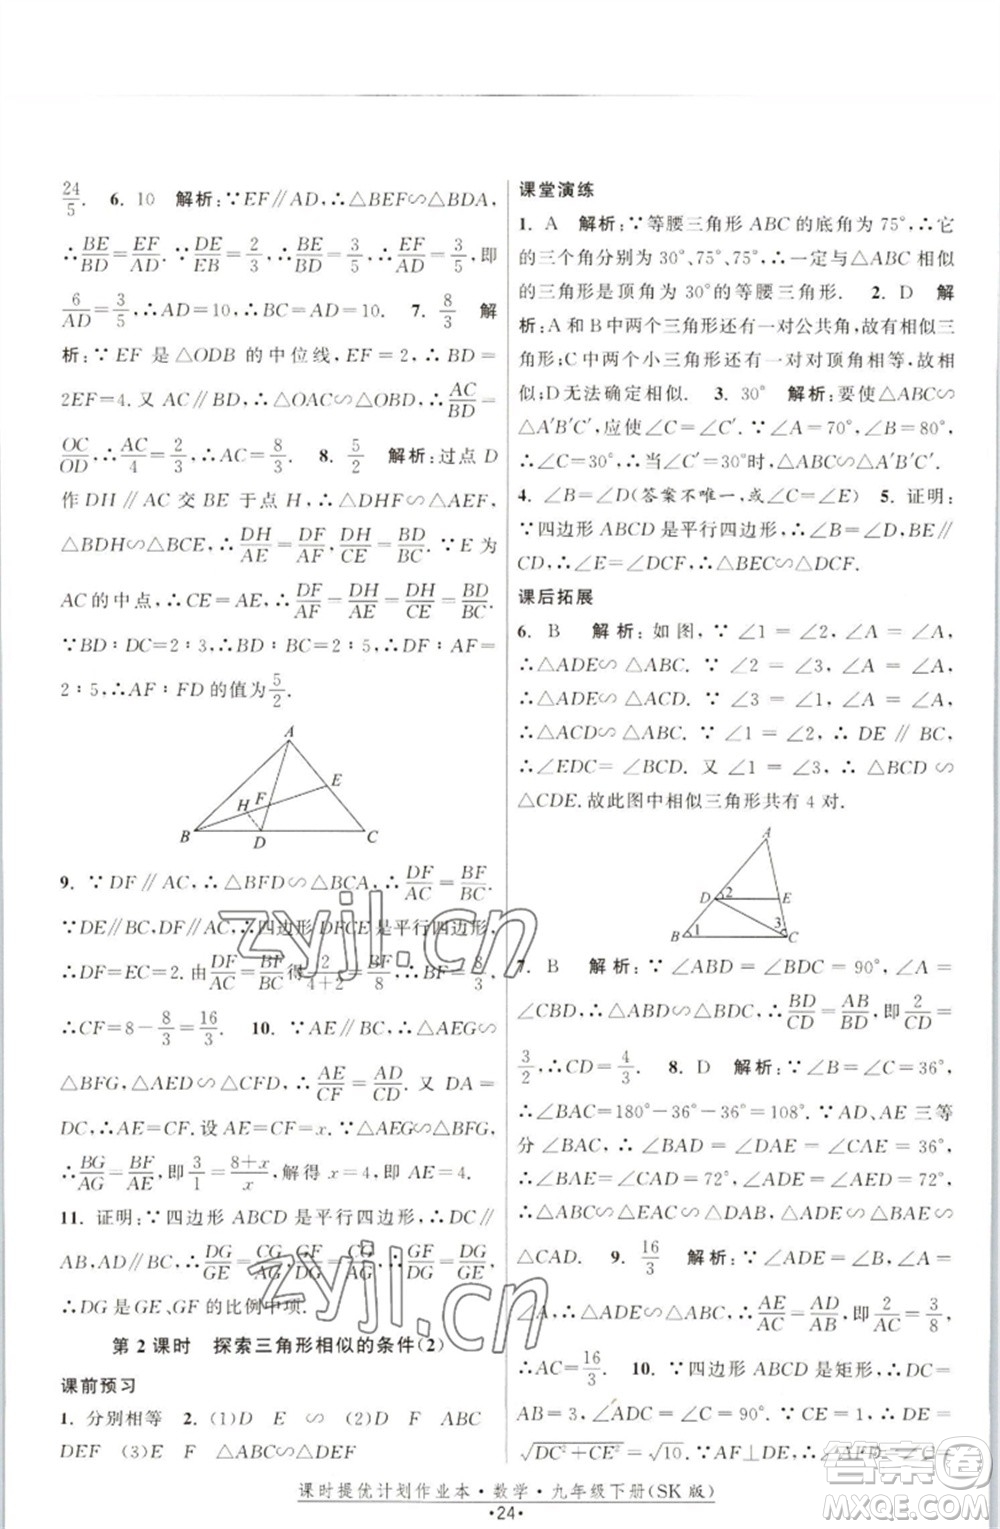 24/5. 6. 10 解析:∵EF∥AD,∴△BEF∽△BDA,
∴BE/BD=EF/AD. ∵DE/EB=2/3,∴BE/BD=3/5,∴EF/AD=3/5,即
6/AD=3/5,∴AD=10,∴BC=AD=10. 7. 8/3 解
析:∵EF 是△ODB 的中位线,EF=2,∴BD=
2EF=4.又 AC∥BD,∴△OAC∽△OBD,∴AC/BD=
OC/OD,∴AC/4=2/3,∴AC=8/3. 8. 5/2 解析:过点 D
作 DH∥AC 交 BE 于点 H,∴△DHF∽△AEF,
△BDH∽△BCE,∴DH/AE=DF/AF,DH/CE=BD/BC. ∵E 为
AC 的中点,∴CE=AE,∴DF/AF=DH/AE=DH/CE=BD/BC.
∵BD∶DC=2∶3,∴BD∶BC=2∶5,∴DF∶AF=
2∶5,∴AF∶FD 的值为5/2.
A
E
H F
B D C
9. ∵DF∥AC,∴△BFD∽△BCA,∴DF/AC=BF/BC.
∵DE∥BC,DF∥AC,∴四边形 DFCE 是平行四边形,
∴DF=EC=2.由DF/AC=BF/BC得2/(4+2)=BF/8,∴BF=8/3,
∴CF=8-8/3=16/3. 10. ∵AE∥BC,∴△AEG∽
△BFG,△AED∽△CFD,∴AE/CF=AD/CD.又 DA=
DC,∴AE=CF.设 AE=CF=x. ∵△AEG∽△BFG,
∴BG/AG=BF/AE,即3/1=(8+x)/x,解得 x=4,即 AE=4.
11. 证明:∵四边形 ABCD 是平行四边形,∴DC∥
AB,AD∥BC,∴DG/GE=CG/AG,GF/DG=CG/AG,∴GF/DG=DG/GE,
∴DG 是 GE、GF 的比例中项.
第 2 课时 探索三角形相似的条件(2)
课前预习
1. 分别相等 2. (1)D E ∽ (2)D F ABC
DEF (3)E F △ABC∽△DEF
课堂演练
1. A 解析:∵等腰三角形 ABC 的底角为 75°,∴它
的三角分别为 30°、75°、75°,∴一定与△ABC 相似
的三角形是顶角为 30°的等腰三角形. 2. D 解
析:A 和 B 中两个三角形还有一对公共角,故有相似三
角形;C 中两个小三角形还有一对对顶角相等,故相
似;D 无法确定相似. 3. 30° 解析:要使△ABC∽
△A′B′C′,应使∠C=∠C′. ∵∠A=70°,∠B=80°,
∴∠C=30°,∴当∠C′=30°时,△ABC∽△A′B′C′.
4. ∠B=∠D(答案不唯一,或∠C=∠E) 5. 证明:
∵四边形 ABCD 是平行四边形,∴∠B=∠D,BE∥
CD,∴∠E=∠DCF,∴△BEC∽△DCF.
课后拓展
6. B 解析:如图,∵∠1=∠2,∠A=∠A,
∴△ADE∽△ABC. ∵∠2=∠3,∠A=∠A,
∴△ADE∽△ACD. ∵∠3=∠1,∠A=∠A,
∴△ACD∽△ABC. ∵∠1=∠2,∴DE∥BC,
∴∠EDC=∠BCD.又∠1=∠3,∴△BCD∽
△CDE.故此图中相似三角形共有 4 对.
A
D 2 E
B 1 3 C
7. B 解析:∵∠ABD=∠BDC=90°,∠A=
∠CBD,∴△ABD∽△BDC,∴BD/CD=AB/BD,即2/CD=
3/2,∴CD=4/3. 8. D 解析:∵∠B=∠C=36°,
∴∠BAC=180°-36°-36°=108°. ∵AD、AE 三等
分∠BAC,∴∠BAD=∠DAE=∠CAE=36°,
∴∠BAE=∠CAD=72°,∠ADE=∠AED=72°,
∴△ABC∽△EAC∽△DAB,△ADE∽△BAE∽
△CAD. 9. 16/3 解析:∵∠ADE=∠B,∠A=
∠A,∴△ADE∽△ABC,∴AE/AC=AD/AB,即2/AC=3/8,
∴AC=16/3. 10. ∵四边形 ABCD 是矩形,∴DC=
AB=3,∠ADC=∠C=90°. ∵CE=1,∴DE=
√(DC²+CE²)=√10. ∵AF⊥DE,∴∠AFD=90°=
课时提优计划作业本·数学·九年级下册(SK 版)
·24·
zyjl.cn
zyjl.cn
答案圈
MXQE.COM